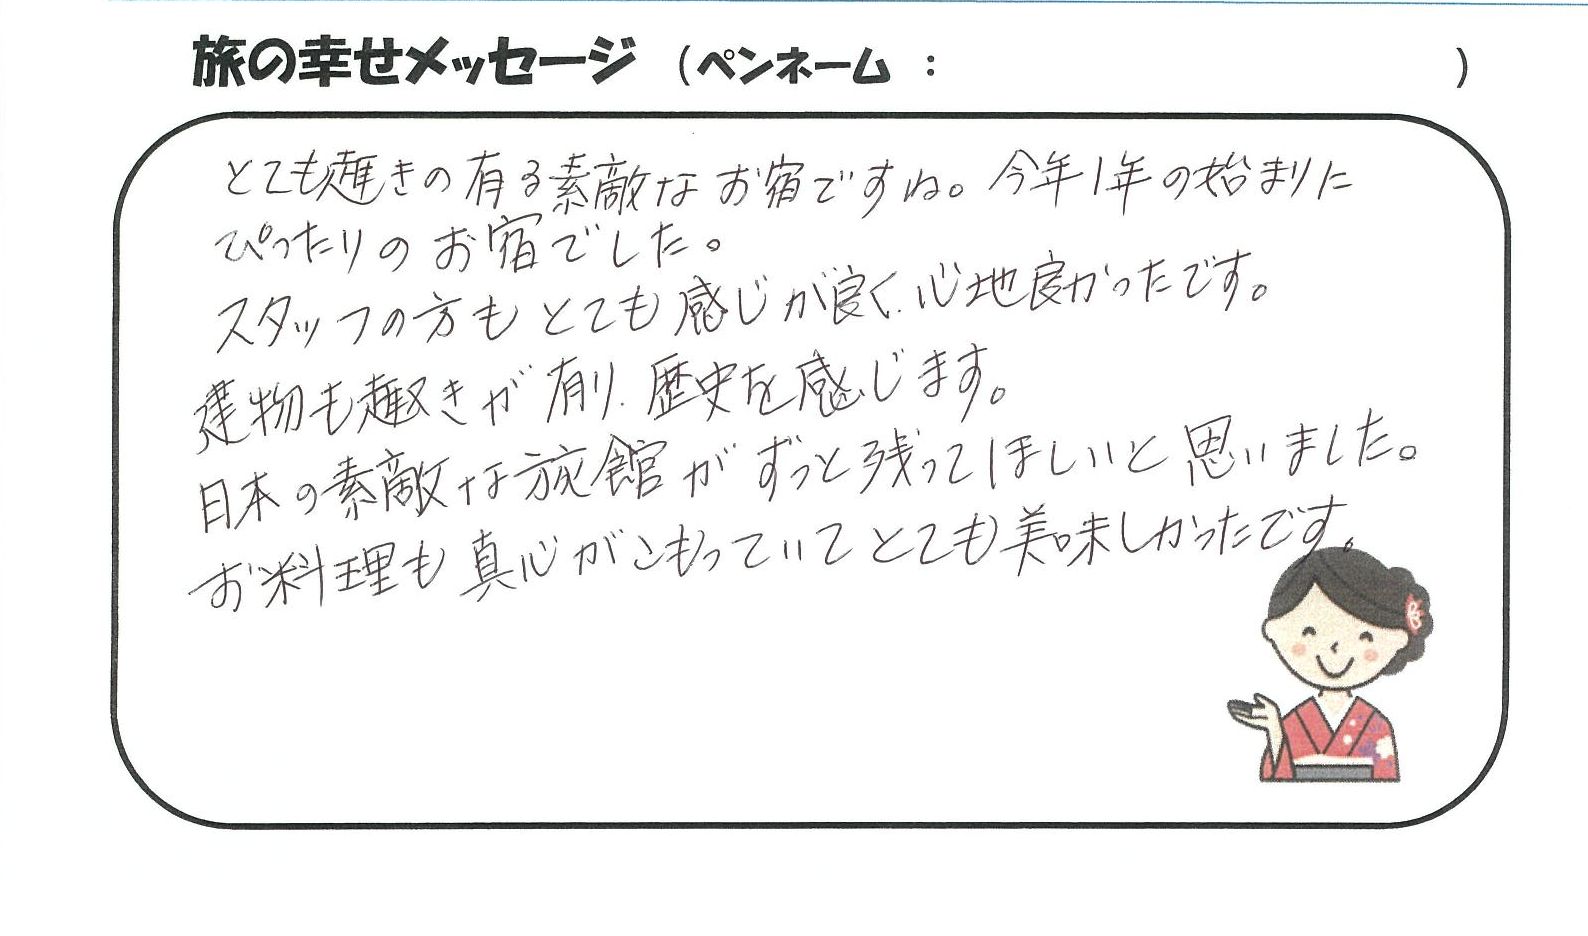 旅の幸せメッセージ (ペンネーム : )
とても趣きの有る素敵なお宿ですね。今年1年の始まりに
ぴったりのお宿でした。
スタッフの方もとても感じが良く、心地良かったです。
建物も趣きが有り、歴史を感じます。
日本の素敵な旅館がずっと残ってほしいと思いました。
お料理も真心がこもっていてとても美味しかったです。